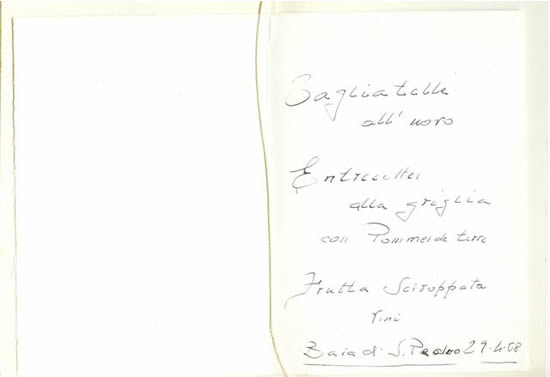 Tagliatelli
all' uovo
Entrecôtes
alla griglia
con Pommes de terre
Frutta Sciroppata
Vini
Baia di S. Pedro 29.4.58